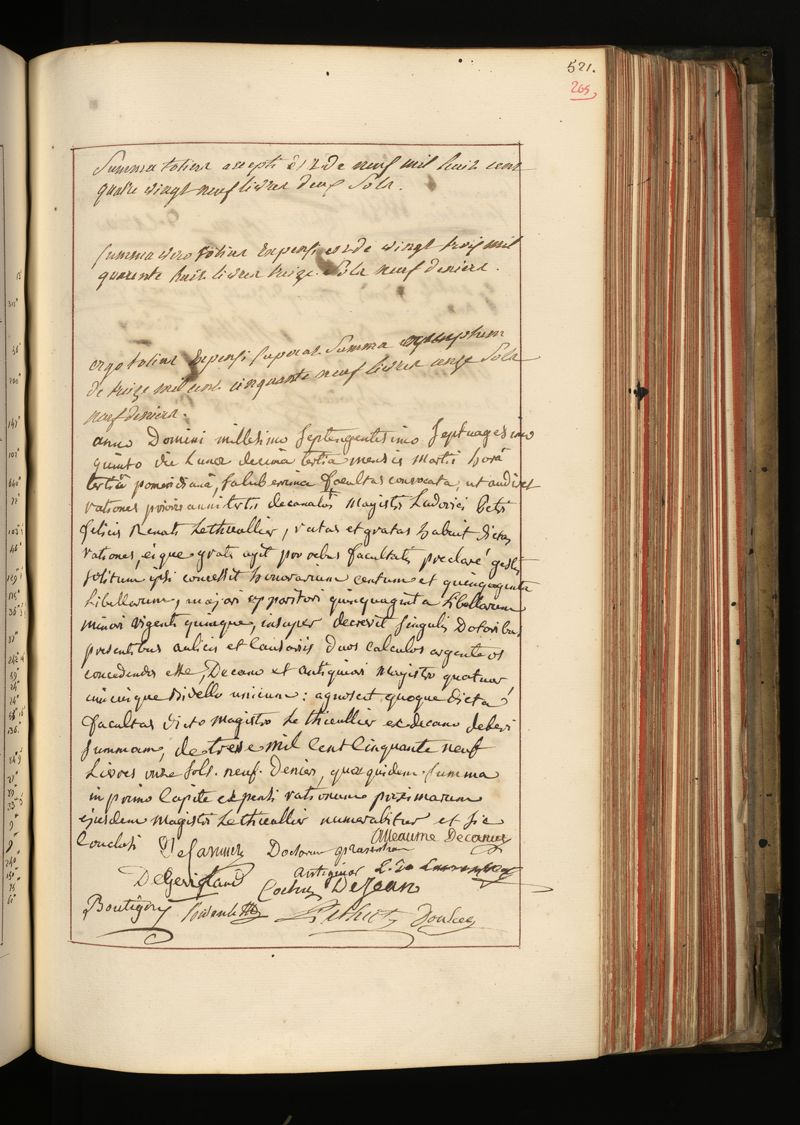 521.
265
Summa totius accepti est de neuf mil huit cent
quatre vingt neuf livres deux sols.
Summa vero totius Expensi est de vingt trois mil
quarente huit livres treize sols neuf deniers.
ergo totius Expensi superat Summa acceptum
de treize mil cent cinquante neuf livres onze Sols
neuf deniers.
anno Domini millesimo septingentesimo septuagesimo
quinto die Lunae decima tertia mensis Martii horâ
tertiâ pomeridianâ, saluberrima facultas convocata, ut audiret
rationes prioris anni decanatûs Magistri Ludovici Petri
felicis Renati Lethieullier, ratas et gratas habuit dictas
rationes, eique grates agit pro rebus facultatis preclarè gestis
solitum ipsi concessit honorarium centum et quinquaginta
Libellarum, majori apparitori quinquaginta Libellarum
minori vigenti quinque, insuper decrevit singulis Doctoribus
presentibus aulicis et causariis duos calculos argenteos
concedendos esse, Decano et antiquiori Magistro quatuor
cuicuique unicum: agnoscit quoque dicta
facultas dicto magistro Lethieullier ex decano deberi
summam, de treise mil Cent Cinquante neuf
Livres onze sols. neuf. Denier, quae quidem summa
in primo Capite expensi rationum proximarum
ejusdem magistri Lethieullier numerabitur et sic
Conclusi
Alleaume Decanus
Doctorum
antiquior
DeGevigland
Cochu
DeJean
Boutigny